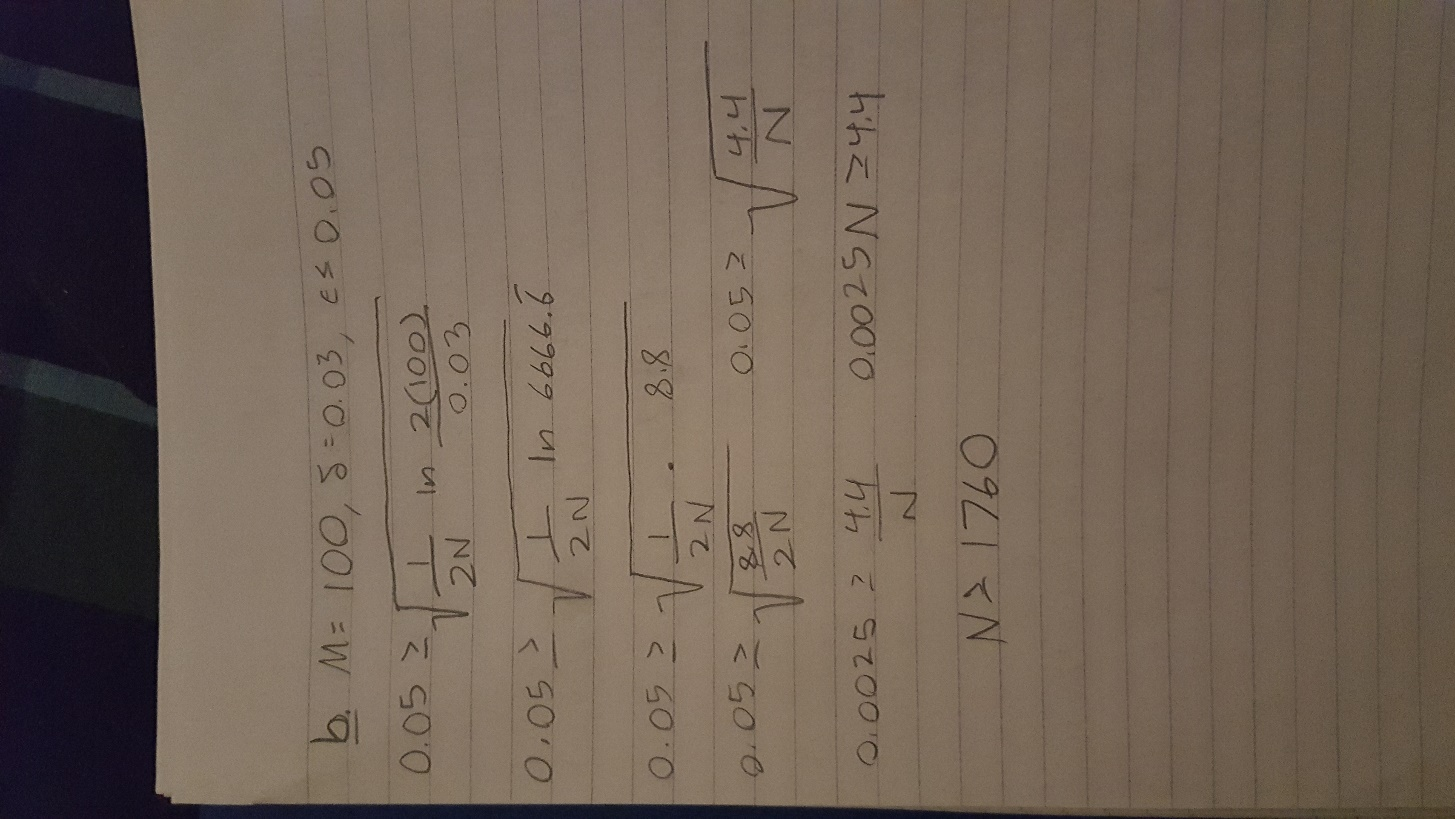 b. M = 100, δ = 0.03, ε ≤ 0.05
0.05 ≥ √(1/2N ln 2(100)/0.03)
0.05 ≥ √(1/2N ln 6666.6̅)
0.05 ≥ √(1/2N · 8.8)
0.05 ≥ √(8.8/2N) 0.05 ≥ √(4.4/N)
0.0025 ≥ 4.4/N 0.0025N ≥ 4.4
N ≥ 1760